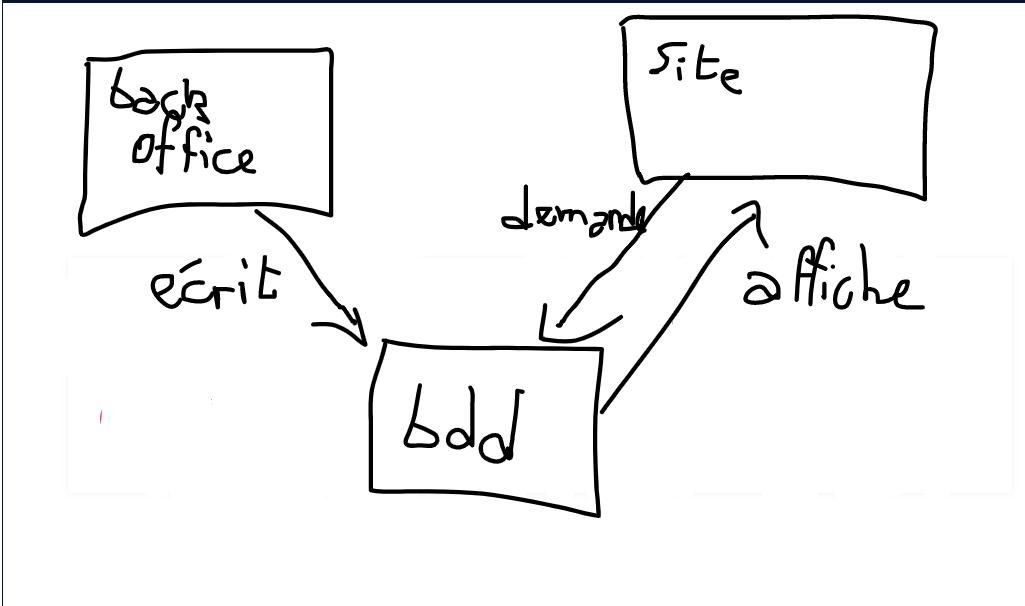 back
office
site
demande
écrit
affiche
bdd